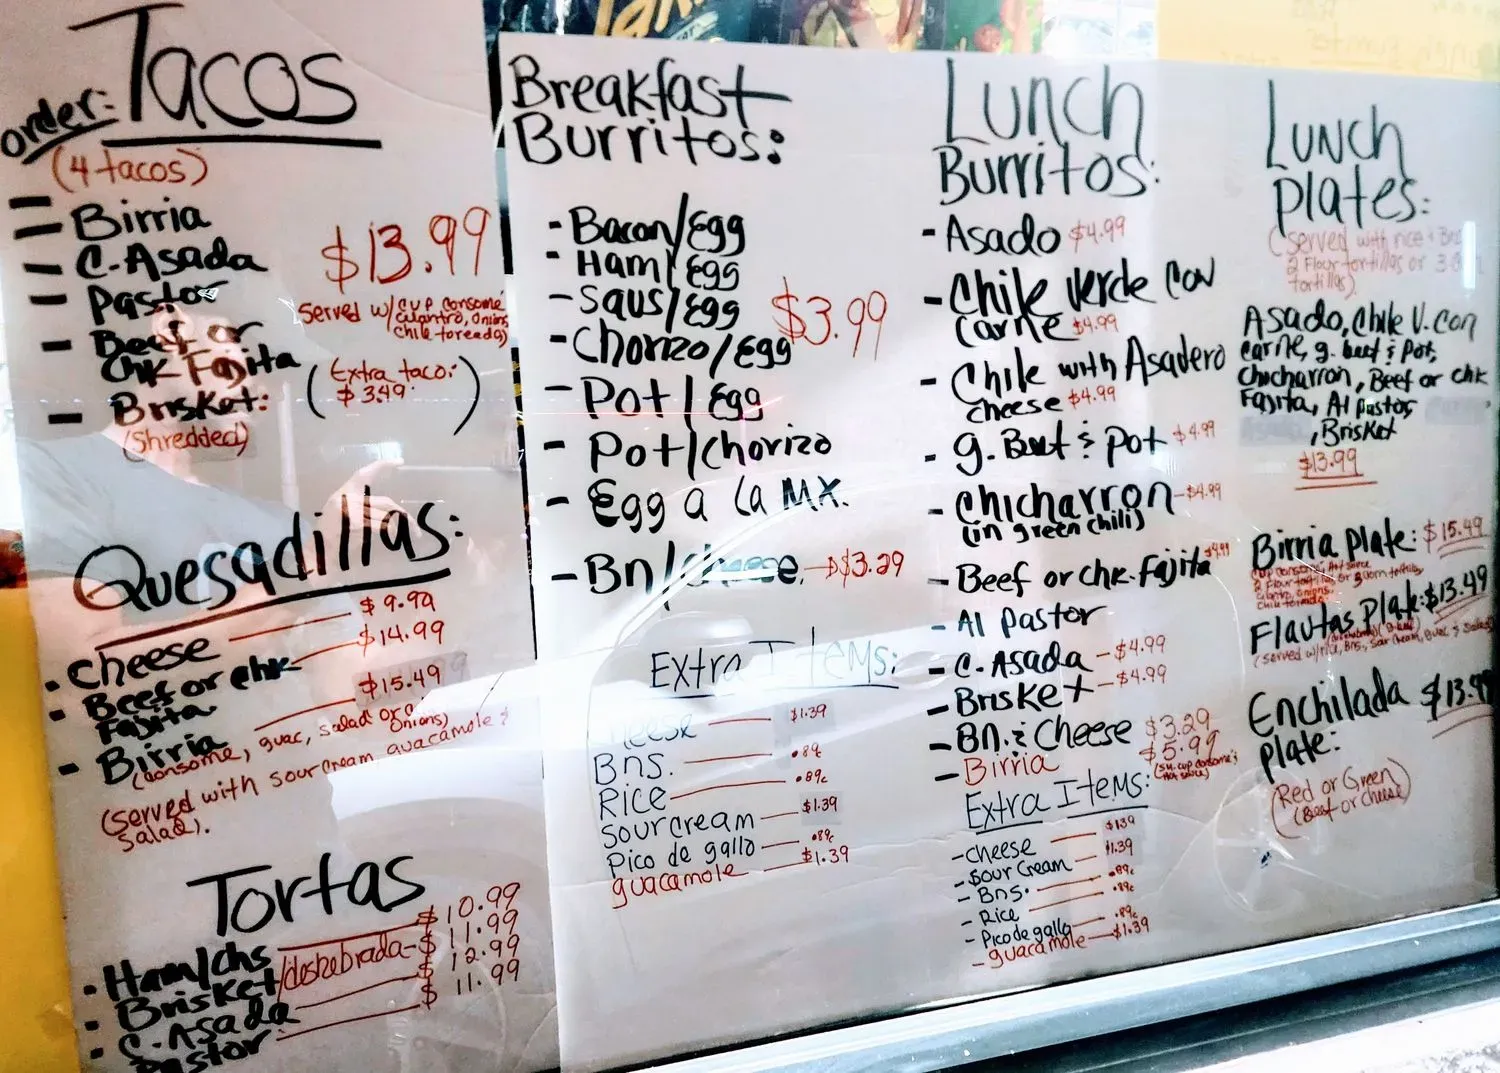 Tacos
order:
(4 tacos)
- Birria
- C. Asada
- Pastor
- Beef or
Chk Fajita
- Brisket:
(Shredded)
$13.99
Served w/cup consomé
cilantro, onions
chile toreada)
(Extra taco:
$3.49)
Quesadillas:
· Cheese $9.99
· Beef or chk $14.99
Fajita
· Birria $15.49
(consome, guac, salad or
onions)
(served with sour cream guacamole &
salad).
Tortas
· Ham/chs $10.99
· Brisket/deshebrada - $11.99
· C. Asada $12.99
Pastor $11.99
Breakfast
Burritos:
- Bacon/Egg
- Ham/Egg
- Saus/Egg
- Chorizo/Egg
$3.99
- Pot/Egg
- Pot/Chorizo
- Egg a La MX.
- Bn/Cheese. $3.29
Extra Items:
Cheese $1.39
Bns. .89¢
Rice .89¢
Sour cream $1.39
Pico de gallo .89¢
guacamole $1.39
Lunch
Burritos:
- Asado $4.99
- Chile verde con
carne $4.99
- Chile with Asadero
cheese $4.99
- g. Beef & Pot $4.99
- Chicharron - $4.99
(in green chili)
- Beef or chk. Fajita $4.99
- Al Pastor
- C. Asada - $4.99
- Brisket - $4.99
- Bn. & Cheese $3.29
- Birria $5.99
(sm. cup consome &
hot sauce)
Extra Items:
- Cheese $1.39
- Sour Cream $1.39
- Bns. .89¢
- Rice .89¢
- Pico de gallo .89¢
- guacamole - $1.39
Lunch
Plates:
(Served with rice &
2 Flour tortillas or 3
tortillas)
Asado, Chile V. Con
carne, g. beef & Pot,
Chicharron, Beef or chk
Fajita, Al Pastor,
, Brisket
$13.99
Birria Plate: $15.49
2 Flour tortillas or
cilantro, onions,
Chile toreado
Flautas Plate: $13.49
(served w/rice, Bns, Sour Cream, guac & salad)
Enchilada $13.99
Plate:
(Red or Green)
(Beef or Cheese)